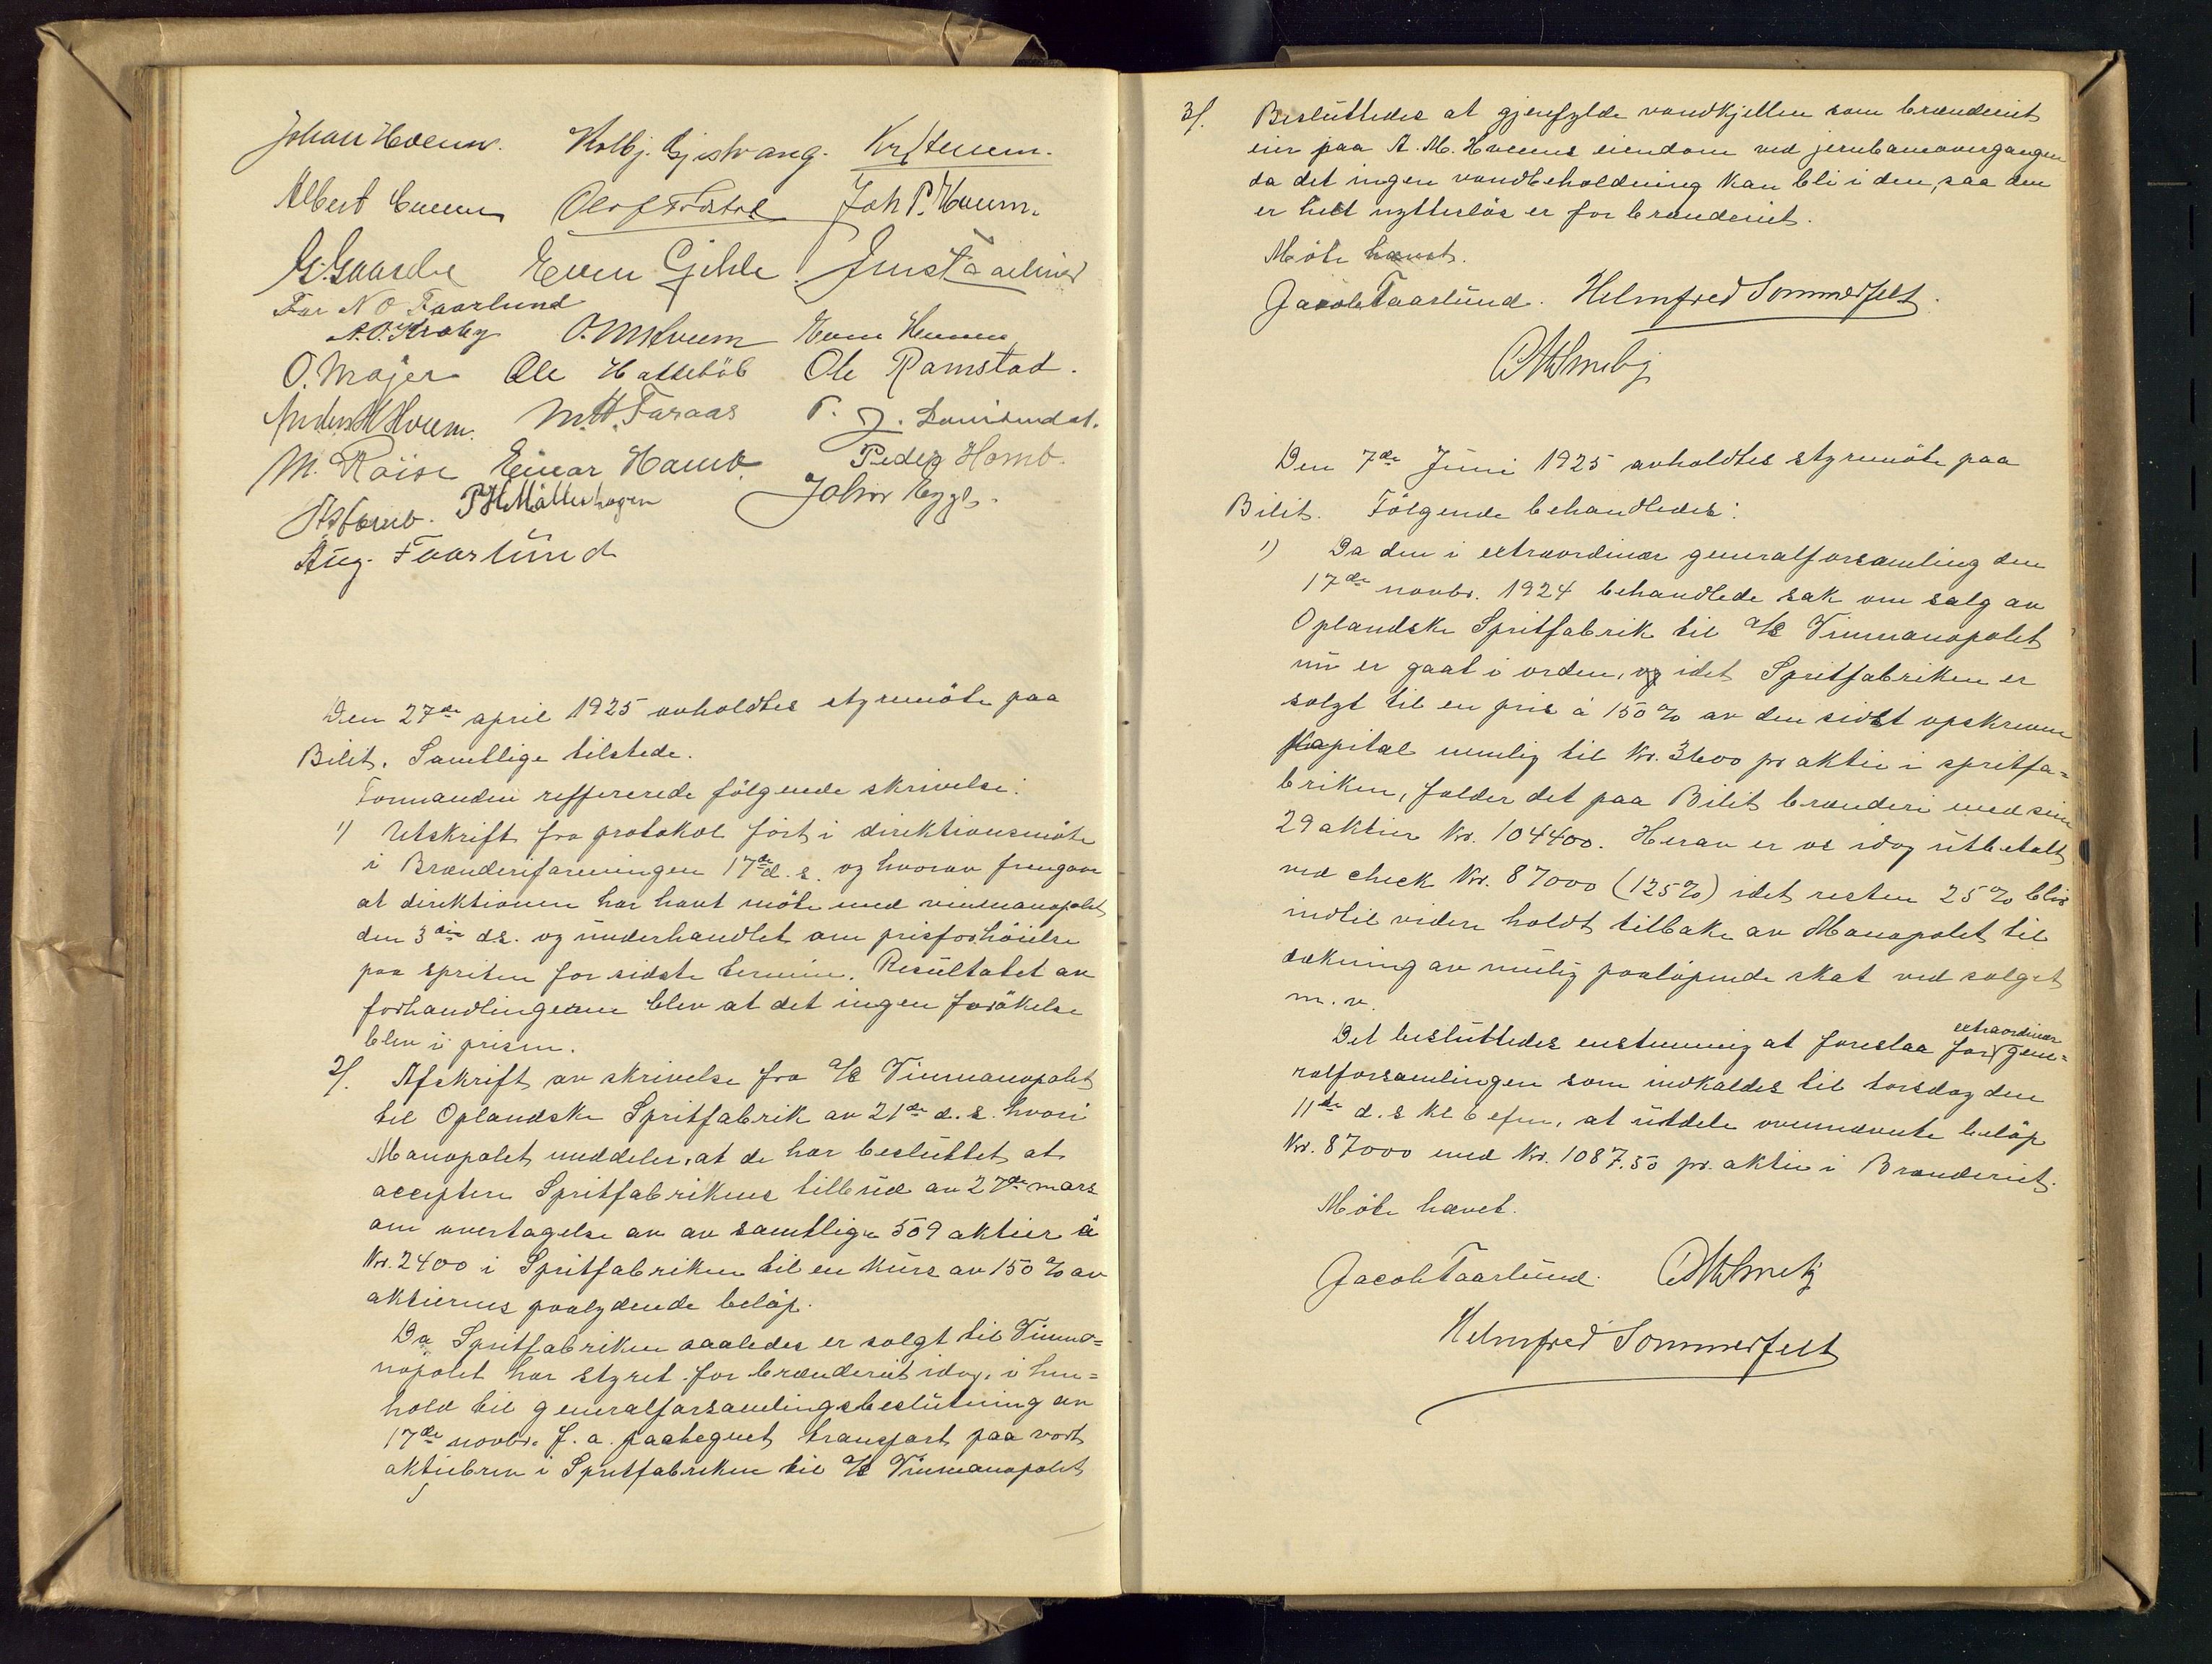 Johan Hveem. Kolbj. Gjestvang. Kr Hveem.
Albert Hveem Olof Joh P. Hveem.
G. Gaarder Even Gihle Just
For N O Faarlund
A. O. Kraby O. M Hveem Even
O. Majer Ole Hasselöb Ole Ramstad.
Anders H Hveem. M. H. Faraas P. J.
M. Röise Einar Homb. Peder Homb.
Homb. P H Möllerhagen Johan Egge.
Aug. Faarlund
Den 27de april 1925 avholdtes styremöte paa
Bilit. Samtlige tilstede.
Formanden reffererede fölgende skrivelse:
1) Utskrift fra protokol fört i direktionsmöte
i Brænderiforeningen 17de d. s. og hvorav fremgaar
at direktionen har havt möte med vinmonopolet
den 3die ds. og underhandlet om prisforhöielse
paa spriten for sidste termin. Resultatet av
forhandlingerne blev at det ingen forökelse
blev i prisen.
2/. Afskrift av skrivelse fra A/S Vinmonopolet
til Oplandske Spritfabrik av 21de d. s. hvori
Monopolet meddeler, at de har besluttet at
acceptere Spritfabrikens tilbud av 27de mars
om overtagelse av av samtlige 509 aktier à
Kr. 2400 i Spritfabriken til en kurs av 150 % av
aktiernes paalydende belöp.
Da Spritfabriken saaledes er solgt til Vinmo=
nopolet har styret for brænderiet idag, i hen=
hold til generalforsamlingsbeslutning av
17de novbr. f. a. paategnet transport paa vort
aktiebrev i Spritfabriken til A/S Vinmonopolet
3/. Besluttedes at gjenfylde vandkjellen som brænderiet
eier paa A. M. Hveems eiendom ved jernbaneovergangen
da det ingen vandbeholdning kan bli i den, saa den
er helt nytteslös er for brænderiet.
Möte hævet.
Jacob Faarlund. Helmfred Sommerfelt.
O M Smeby
Den 7de Juni 1925 avholdtes styremöte paa
Bilit. Fölgende behandledes:
1) Da den i extraordinær generalforsamling den
17de novbr. 1924 behandlede sak om salg av
Oplandske Spritfabrik til A/S Vinmonopolet
nu er gaat i orden, og idet Spritfabriken er
solgt til en pris à 150 % av den sidst opskrevne
kapital nemlig til Kr. 3600 pr aktie i spritfa=
briken, falder det paa Bilit brænderi med sine
29 aktier Kr. 104400. Herav er os idag utbetalt
ved check Kr. 87000 (125%) idet resten 25% blir
indtil videre holdt tilbake av Monopolet til
dækning av mulig paalöpende skat ved salget
m. v.
Det besluttedes enstemmig at foreslaa for extraordinær gene=
ralforsamlingen som indkaldes til torsdag den
11te d. s kl 6 efm, at utdele ovennævnte belöp
Kr. 87000 med Kr. 1087.50 pr. aktie i Brænderiet.
Möte hævet.
Jacob Faarlund. O M Smeby
Helmfred Sommerfelt